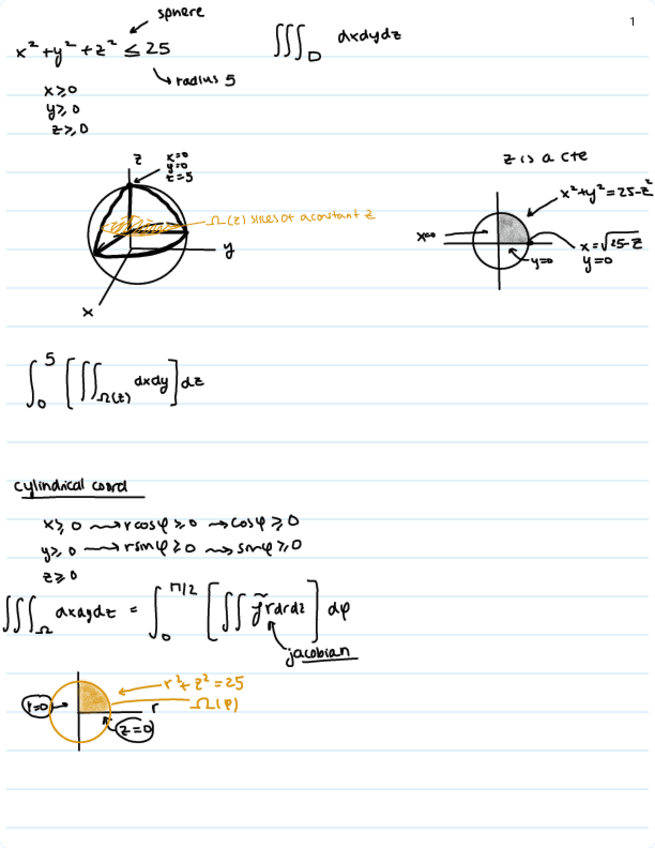 1
sphere
x² + y² + z² ≤ 25
∭_D dxdydz
radius 5
x ≥ 0
y ≥ 0
z ≥ 0
z
x=0
y=0
z=5
Ω(z) slices of a constant z
y
x
z is a cte
x² + y² = 25 - z²
x=0
x = √25-z
y=0
y=0
∫₀⁵ [∬_Ω(z) dxdy] dz
cylindrical coord
x ≥ 0 ⟿ r cos φ ≥ 0 → cos φ ≥ 0
y ≥ 0 ⟿ r sin φ ≥ 0 ⟿ sin φ ≥ 0
z ≥ 0
∭_Ω dxdydz = ∫₀^π/2 [∬ f̃ r dr dz] dφ
jacobian
r² + z² = 25
r=0
r
Ω(φ)
z=0